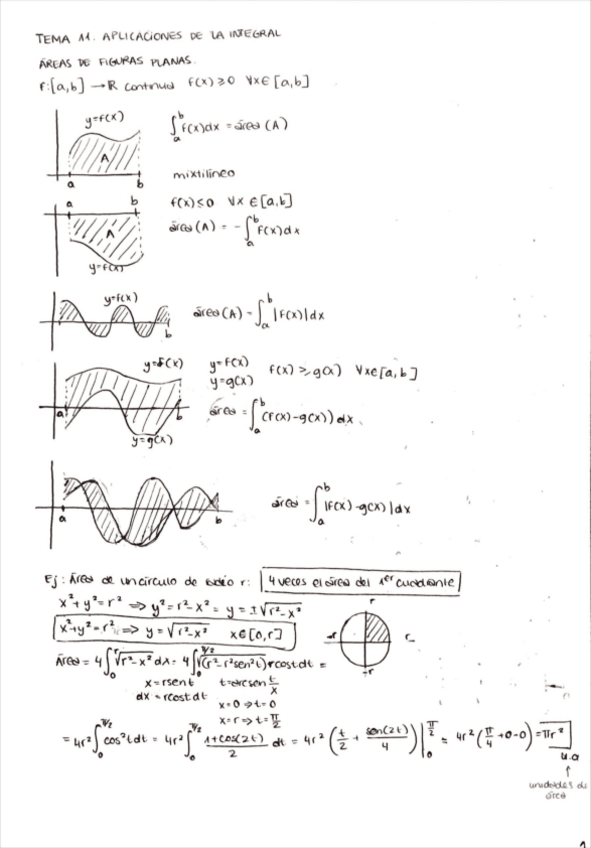 TEMA 11. APLICACIONES DE LA INTEGRAL
ÁREAS DE FIGURAS PLANAS.
f:[a,b] → ℝ continua f(x) ≥ 0 ∀x∈[a,b]
y=f(x)
∫_a^b f(x)dx = área (A)
A
mixtilíneo
a b
a b
f(x) ≤ 0 ∀x ∈ [a,b]
A
área (A) = -∫_a^b f(x)dx
y=f(x)
y=f(x)
área (A) = ∫_a^b |f(x)|dx
a b
y=f(x)
y=f(x)
y=g(x)
f(x) ≥ g(x) ∀x∈[a,b]
a b
área = ∫_a^b (f(x)-g(x)) dx
y=g(x)
área = ∫_a^b |f(x)-g(x)|dx
a b
Ej: Área de un círculo de radio r: 4 veces el área del 1er cuadrante
x²+y²=r² ⇒ y²=r²-x² = y=±√r²-x²
x²+y²=r² ⇒ y=√r²-x² x∈[0,r]
r
-r r
-r
Área = 4∫_0^r √r²-x² dx = 4∫_0^π/2 √(r²-r²sen²t) rcost dt =
x=rsent t=arcsen t/x
dx=rcost dt
x=0 → t=0
x=r ⇒ t=π/2
= 4r²∫_0^π/2 cos²t dt = 4r²∫_0^π/2 1+cos(2t)/2 dt = 4r² (t/2 + sen(2t)/4)|_0^π/2 = 4r² (π/4 +0-0) = πr²
u.a
↑
unidades de
área